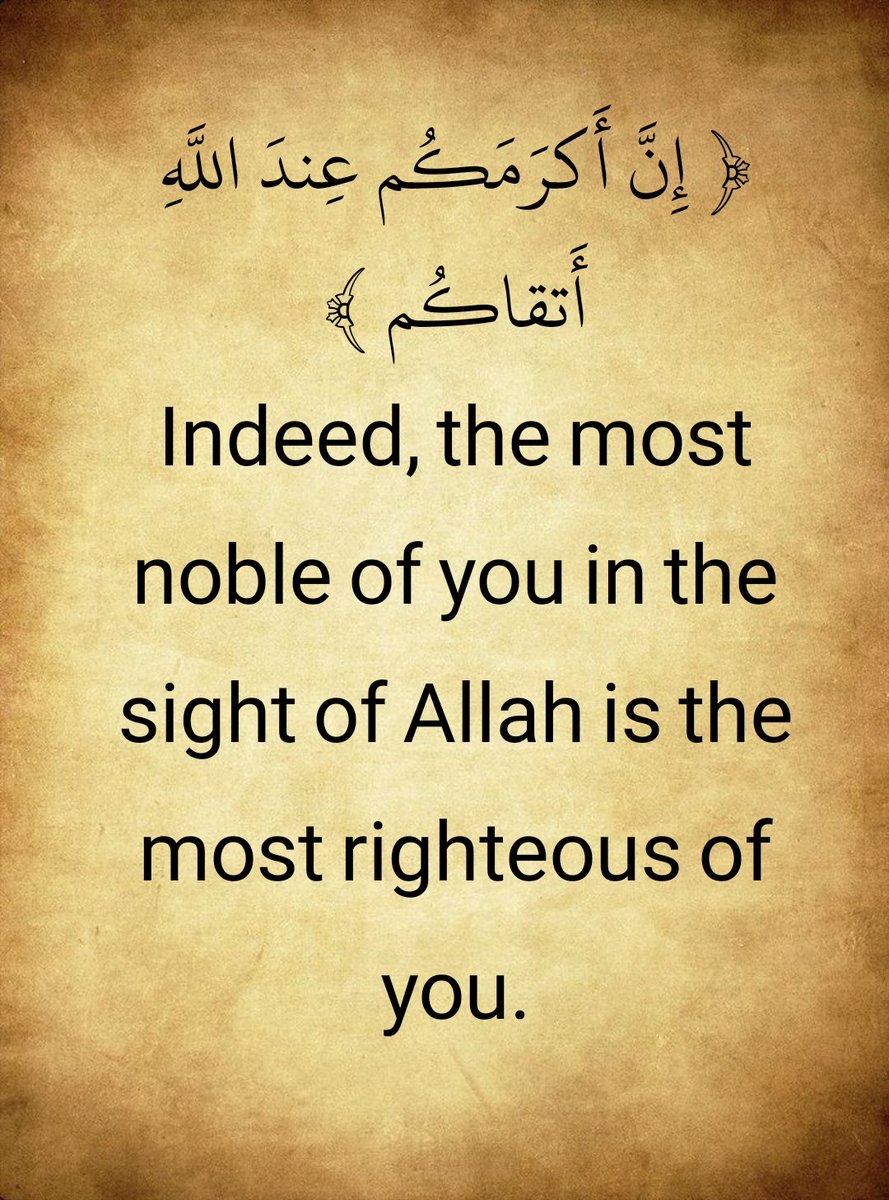 ﴿ إِنَّ أَكرَمَكُم عِندَ اللَّهِ
أَتقاكُم ﴾
Indeed, the most
noble of you in the
sight of Allah is the
most righteous of
you.